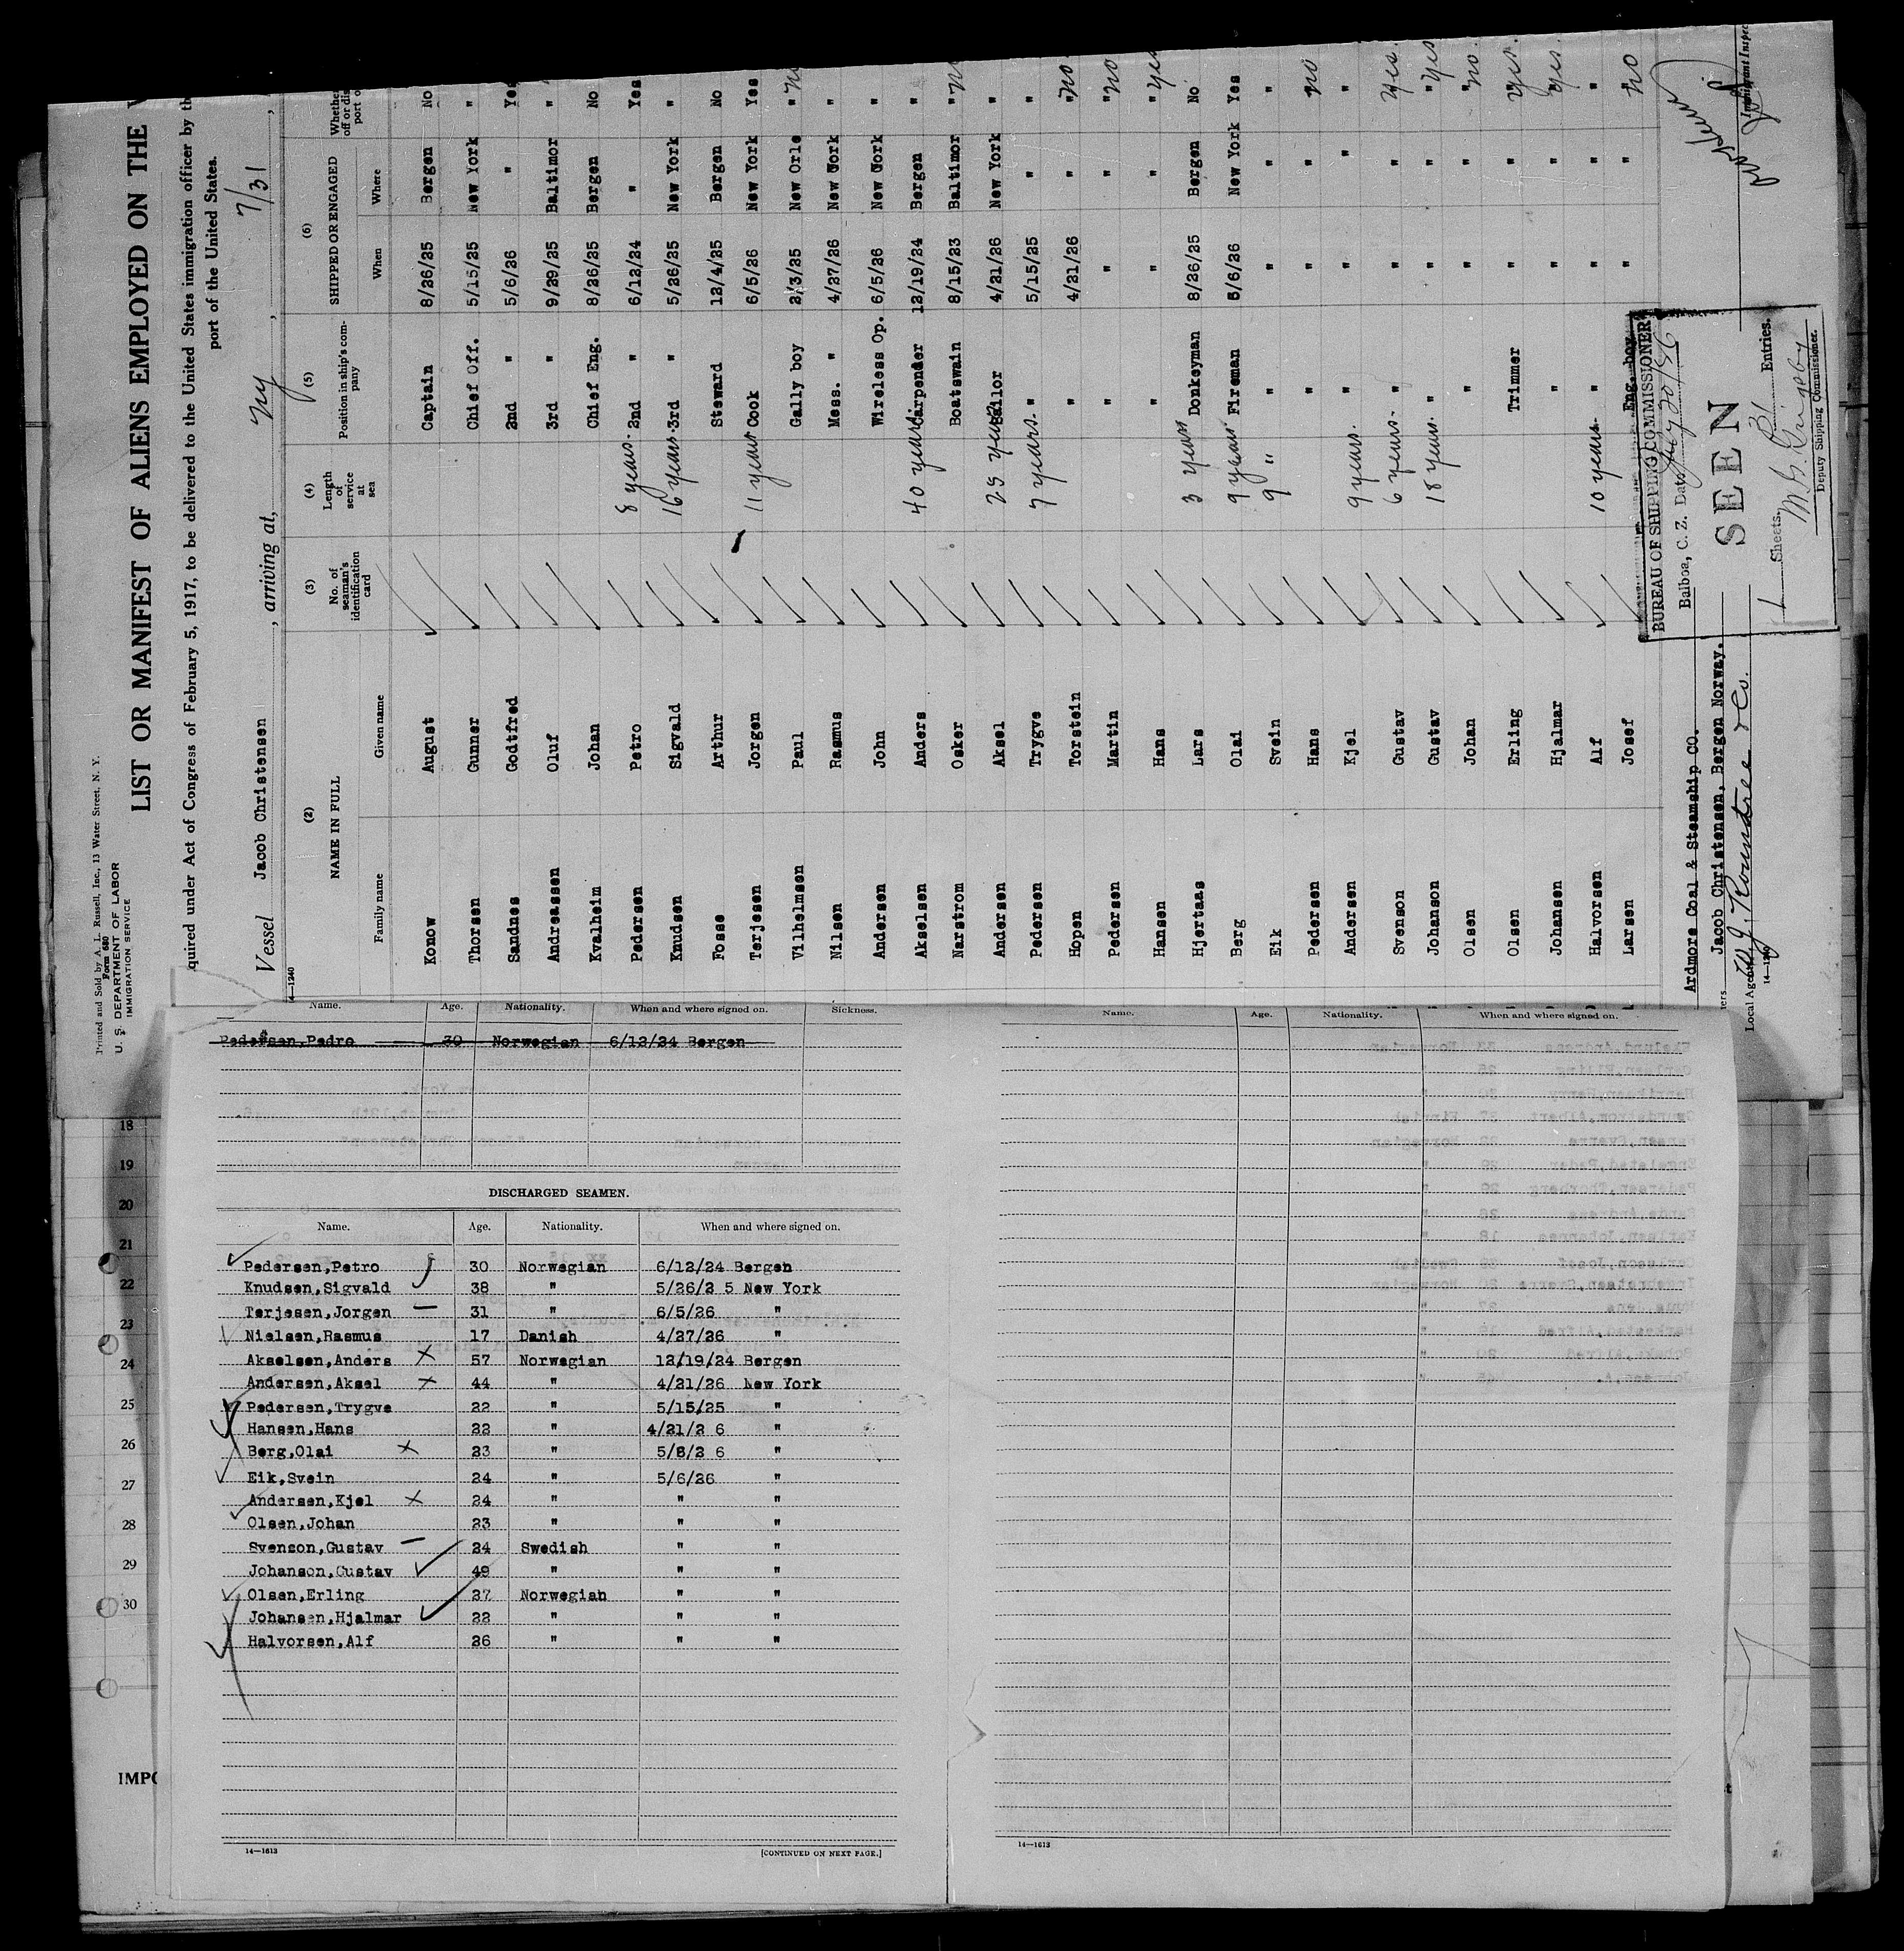 Printed and Sold by A. L. Russell, Inc., 13 Water Street, N. Y.
Form 680
U. S. DEPARTMENT OF LABOR
IMMIGRATION SERVICE
LIST OR MANIFEST OF ALIENS EMPLOYED ON THE
quired under Act of Congress of February 5, 1917, to be delivered to the United States immigration officer by th
port of the United States.
Vessel Jacob Christensen , arriving at, NY , 7/31 ,
14-1240
(2) (3) (4) (5) (6)
NAME IN FULL No. of seaman's identification card Length of service at sea Position in ship's company SHIPPED OR ENGAGED Whether
Family name Given name When Where
Konow August Captain 8/26/25 Bergen No
Thorsen Gunner Chief Off. 5/15/25 New York "
Sandnes Godtfred 2nd " 5/6/26 " Yes
Andreassen Oluf 3rd " 9/29/25 Baltimor "
Kvalheim Johan Chief Eng. 8/26/25 Bergen No
Pedersen Petro 8 years. 2nd " 6/12/24 " Yes
Knudsen Sigvald 16 years. 3rd " 5/26/25 New York "
Fosse Arthur Steward 12/4/25 Bergen No
Terjesen Jorgen 11 years Cook 6/5/26 New York Yes
Vilhelmsen Paul Gally boy 2/3/25 New Orle " No
Nilsen Rasmus Mess. " 4/27/26 New York "
Andersen John Wireless Op. 6/5/26 New York "
Akselsen Anders 40 years Carpender 12/19/24 Bergen "
Narstrom Osker Boatswain 8/15/23 Baltimor " no
Andersen Aksel 25 years Sailor 4/21/26 New York "
Pedersen Trygve 7 years. " 5/15/25 " "
Hopen Torstein " 4/21/26 " " no
Pedersen Martin " " " " no
Hansen Hans " " " " yes
Hjertaas Lars 3 years Donkeyman 8/26/25 Bergen No
Berg Olai 9 years Fireman 5/6/26 New York Yes
Eik Svein 9 " " " " "
Pedersen Hans " " " no
Andersen Kjel 9 years. " " " "
Svenson Gustav 6 years. " " " yes.
Johanson Gustav 18 years. " " " " yes
Olsen Johan " " " " no.
Olsen Erling Trimmer " " yes.
Johansen Hjalmar " " " yes.
Halvorsen Alf 10 years. " " " "
Larsen Josef Eng. boy " " no
Ardmore Coal & Steamship CO.
Jacob Christensen, Bergen Norway.
Local Agents W. J. Rountree & Co.
14-1240
BUREAU OF SHIPPING COMMISSIONER
Balboa, C. Z. Date July 20/26
SEEN
1 Sheets, 31 Entries.
M. G. Grigsby
Deputy Shipping Commissioner.
Immigrant Inspec
Name. Age. Nationality. When and where signed on. Sickness.
Pedersen,Pedro 30 Norwegian 6/12/24 Bergen
DISCHARGED SEAMEN.
Name. Age. Nationality. When and where signed on.
Pedersen,Petro 30 Norwegian 6/12/24 Bergen
Knudsen,Sigvald 38 " 5/26/2 5 New York
Terjesen,Jorgen 31 " 6/5/26 "
Nielsen,Rasmus 17 Danish 4/27/26 "
Akselsen,Anders 57 Norwegian 12/19/24 Bergen
Andersen,Aksel 44 " 4/21/26 New York
Pedersen,Trygve 22 " 5/15/25 "
Hansen,Hans 22 " 4/21/2 6 "
Berg,Olai 23 " 5/8/2 6 "
Eik,Svein 24 " 5/6/26 "
Andersen,Kjel 24 " " "
Olsen,Johan 23 " " "
Svenson,Gustav 24 Swedish " "
Johanson,Gustav 49 " " "
Olsen,Erling 27 Norwegian " "
Johansen,Hjalmar 22 " " "
Halvorsen,Alf 26 " " "
14—1613
[CONTINUED ON NEXT PAGE.]
Name. Age. Nationality. When and where signed on.
14—1613
18
19
20
21
22
23
24
25
26
27
28
29
30
IMPO